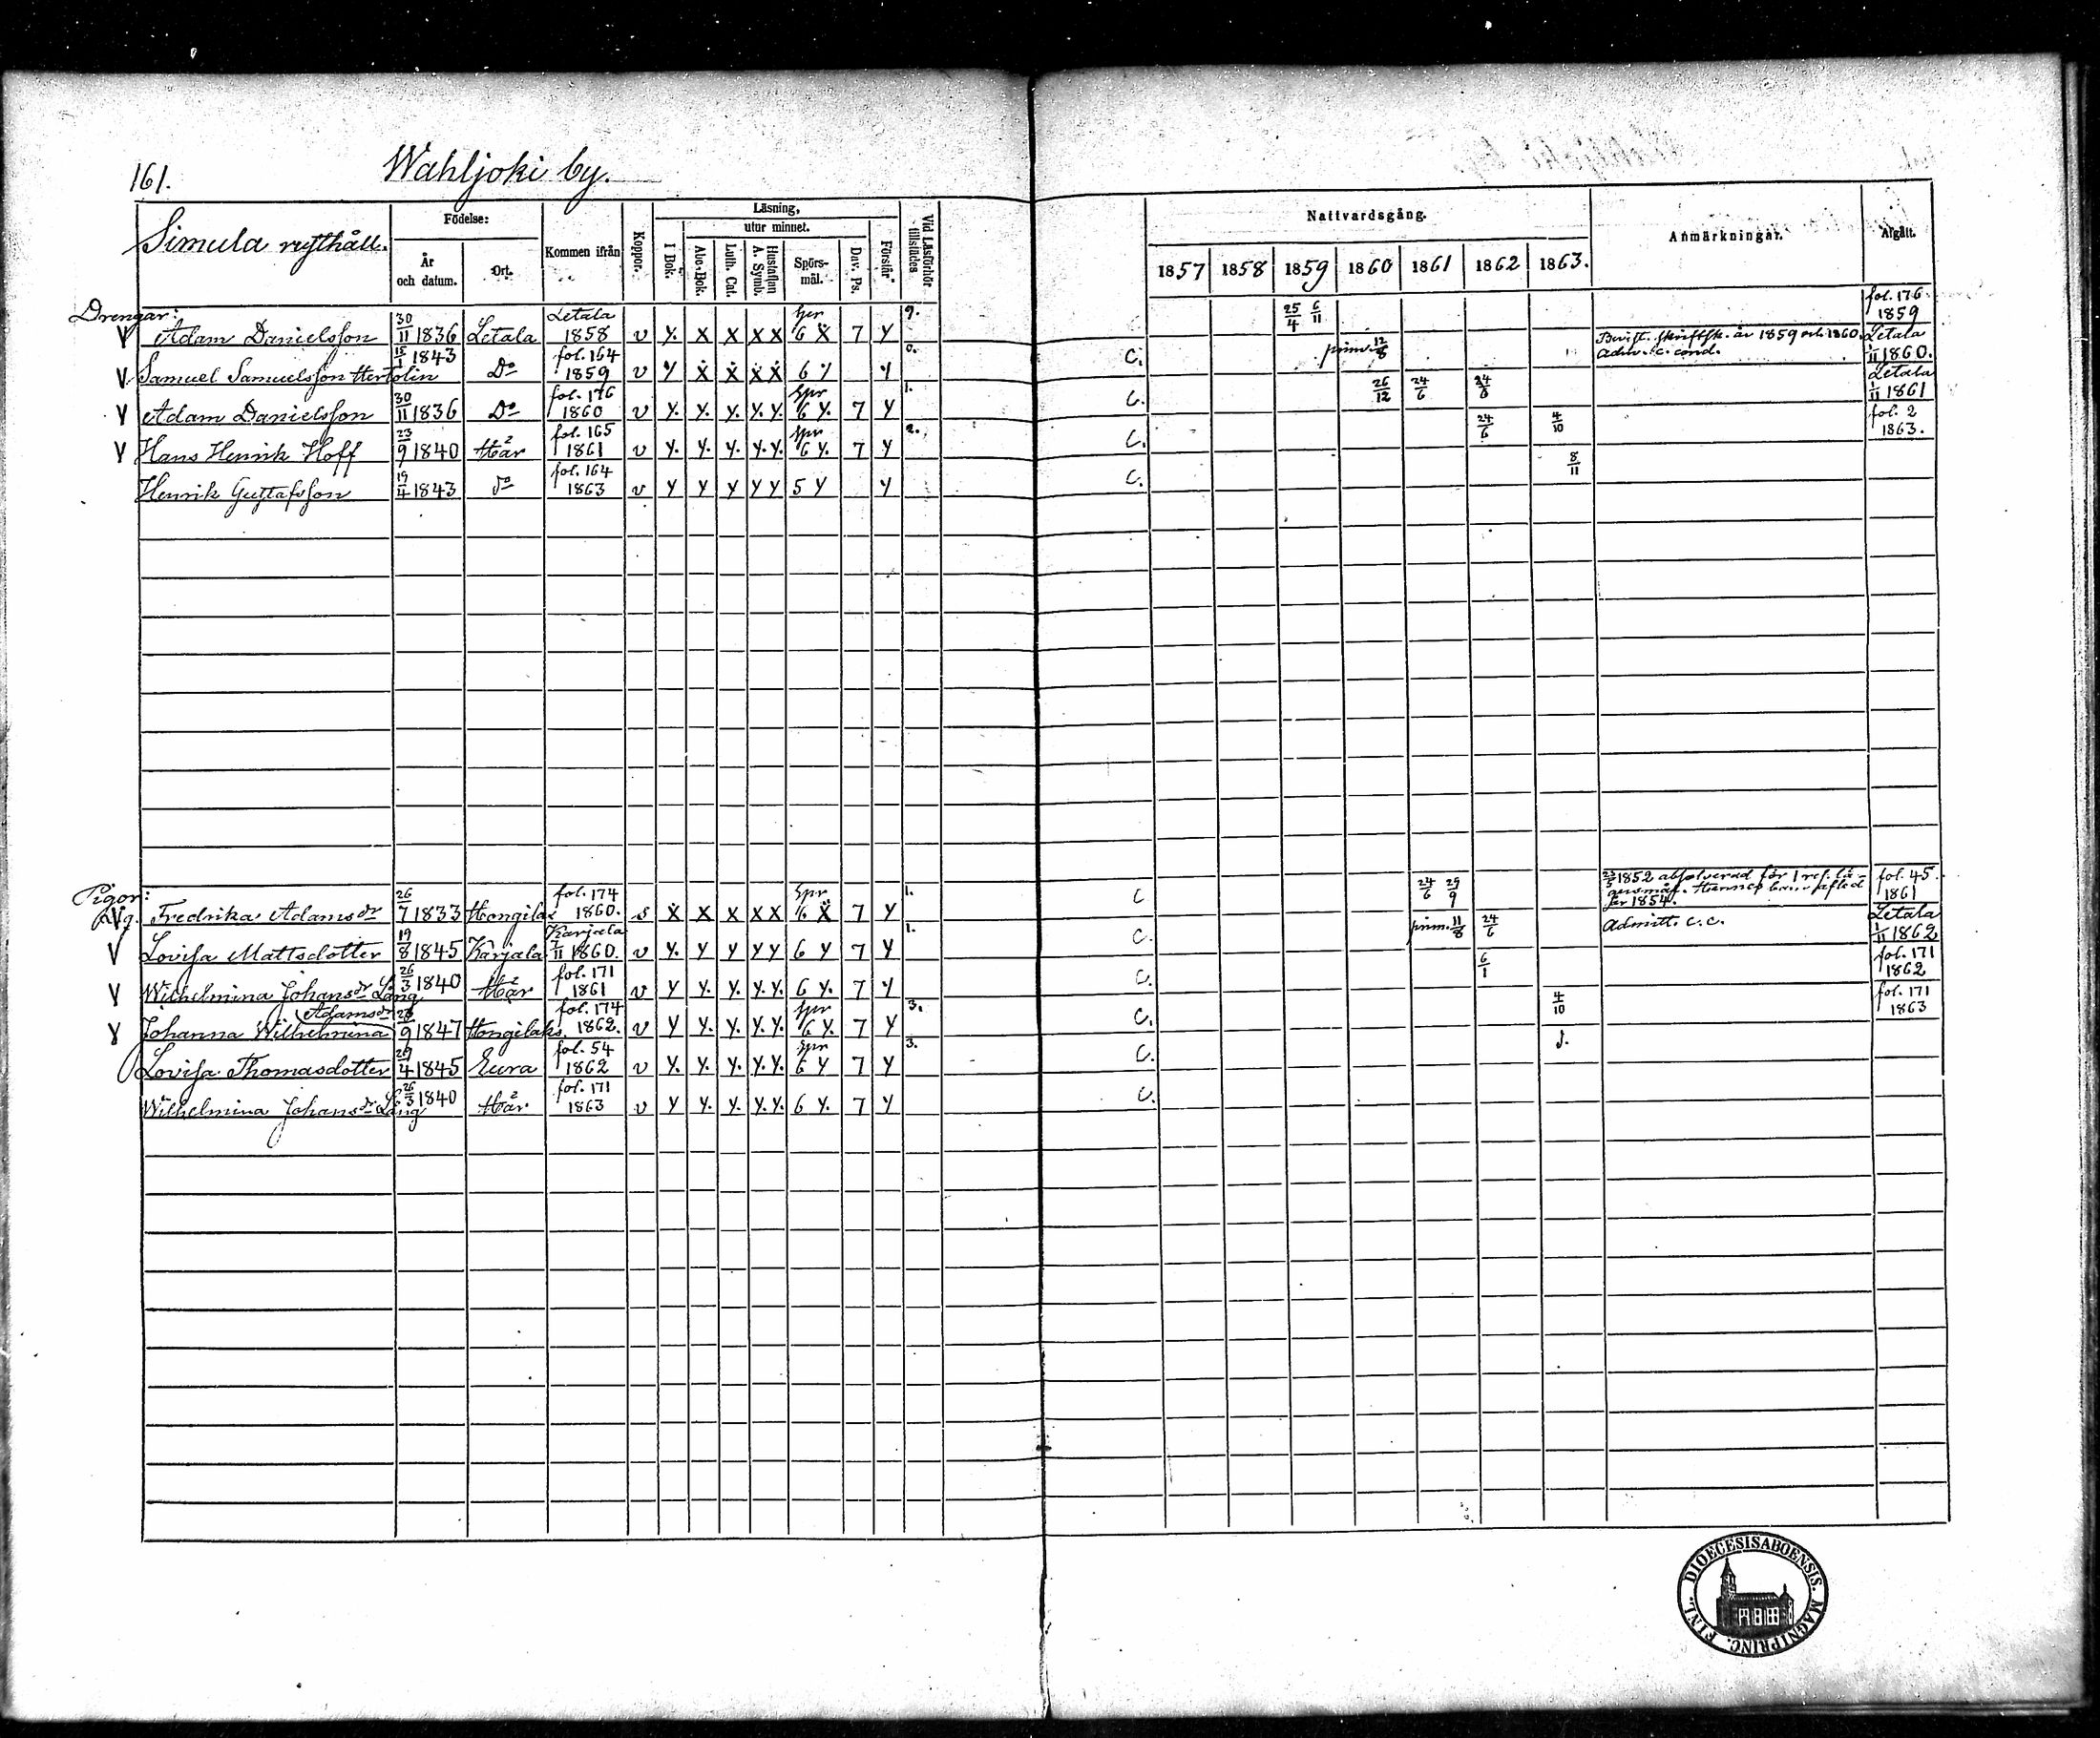 161. Wahljoki by.
Simula rusthåll.
Födelse:
År och datum.
Ort.
Kommen ifrån
Koppor.
Läsning,
I Bok.
utur minnet.
Abc-Bok.
Luth. Cat.
Hustaflan A. Symb.
Spörs-mål.
Dav. Ps.
Förstår
Vid Läsförhör tillstädes
Nattvardsgång.
1857 1858 1859 1860 1861 1862 1863.
Anmärkningar.
Afgått.
Drengar:
V Adam Danielsson 30/11 1836 Letala Letala 1858 v y. x x x x Spr 6 x 7 y 9. 25/4 6/11 fol. 176 1859
V Samuel Samuelsson Hertolin 1843 Do fol. 164 1859 v y x x x x 6 y y 0. C. prim. 12/8 skriftsk. år 1859 och 1860. Adm. c. cond. Letala 1/11 1860.
V Adam Danielsson 30/11 1836 Do fol. 176 1860 v y. y. y. y. y. Spr 6 y. 7 y 1. C. 26/12 24/6 24/6 Letala 1/11 1861
V Hans Henrik Hoff 23/9 1840 Här fol. 165 1861 v y. y. y. y. y. Spr 6 y. 7 y 2. C. 24/6 4/10 fol. 2 1863.
Henrik Gustafsson 19/4 1843 do fol. 164 1863 v y y y y y 5 y y C. 8/11
Pigor:
V Fredrika Adamsdr 26/7 1833 Hongilax fol. 174 1860. s x x x x x Spr 6 x 7 y 1. C 24/6 29/9 1852 absolverad för 1 resf. lä- för 1854. fol. 45. 1861
V Lovisa Mattsdotter 19/8 1845 Karjala Karjala 7/11 1860. v y. y y y y 6 y 7 y 1. C. prim. 11/8 24/6 Admitt. c. c. Letala 1/11 1862
V Wilhelmina Johansdr Lång 26/3 1840 Här fol. 171 1861 v y y. y. y. y. 6 y. 7 y C. 6/1 fol. 171 1862
V Johanna Wilhelmina Adamsdr 9 1847 Hongilaks fol. 174 1862. v y y. y. y. y. Spr 6 y. 7 y 3. C. 4/10 fol. 171 1863
Lovisa Thomasdotter 29/4 1845 Eura fol. 54 1862 v y. y. y. y. y. Spr 6 y 7 y 3. C.
Wilhelmina Johansdr Lång 26/3 1840 Här fol. 171 1863 v y y. y. y. y. 6 y. 7 y C.
DIOECESIS ABOENSIS. MAGNI PRINC. FINL.